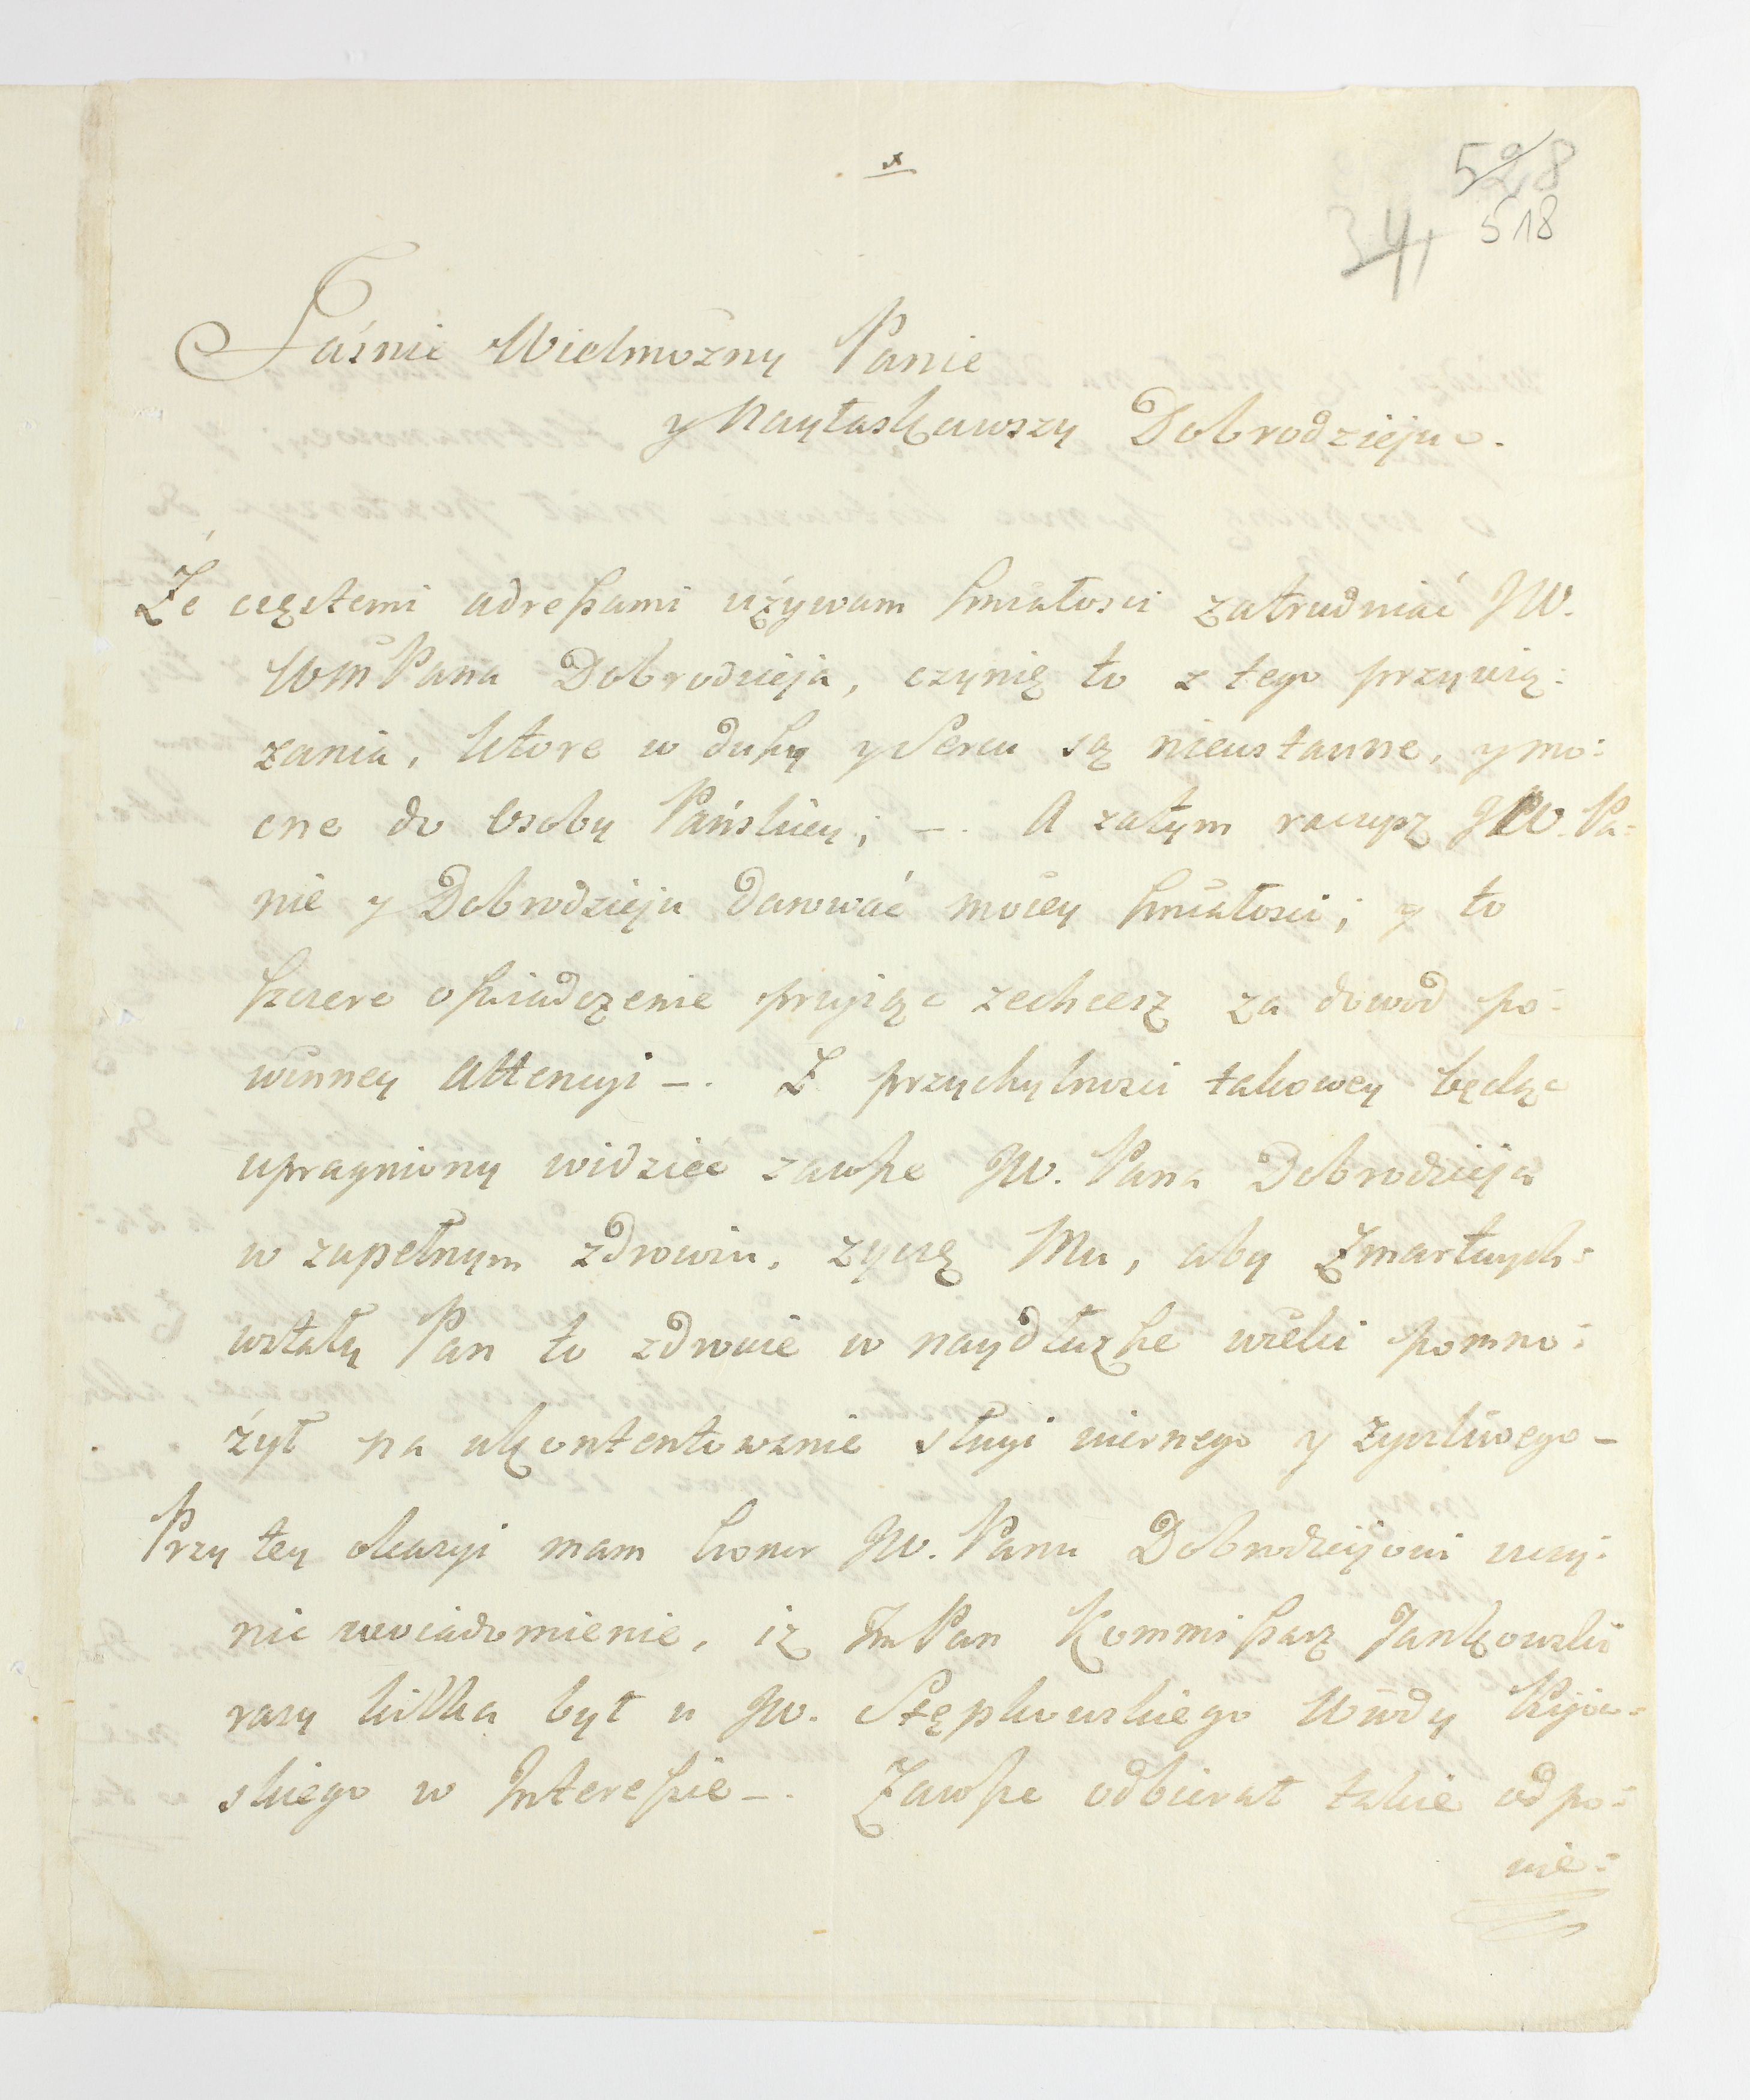 x
528
34, 518
Jaśnie Wielmożny Panie
y Nayłaskawszy Dobrodzieju.
Że częstemi adreſsami użyẃam ſmiałosci zatrudniać JW.
WMPana Dobrodzieja, czynię to z tego przywią:
zania, ktore w duſzy y Sercu są nieustanne, y mo:
cne do Osoby Pańskiey; –. A zatym raczysz JW. Pa:
nie y Dobrodzieju darować moiey ſmiałosci; y to
ſzczere oſwiadczenie przyjąc zechcesz za dowod po:
winney Attencyi –. Z przychylnosci takowey będąc
upragniony widziec zawſze JW. Pana Dobrodzieja
w zupełnym zdrowiu, zyczę Mu, aby Zmartwych:
wstały Pan to zdrowie w naydłuzſze wieki pomno:
żył na ukontentowanie sługi wiernego y zyczliwego –
Przy tey okazyi mam honor JW. Panu Dobrodziejowi uczy:
nic uwiadomienie, iz ImPan Kommiſsarz Jankowski
razy kilka był u JW. Stępkowskiego Wdy Kijow:
skiego w Intereſsie –. Zawſze odbierał takie odpo:
wie: